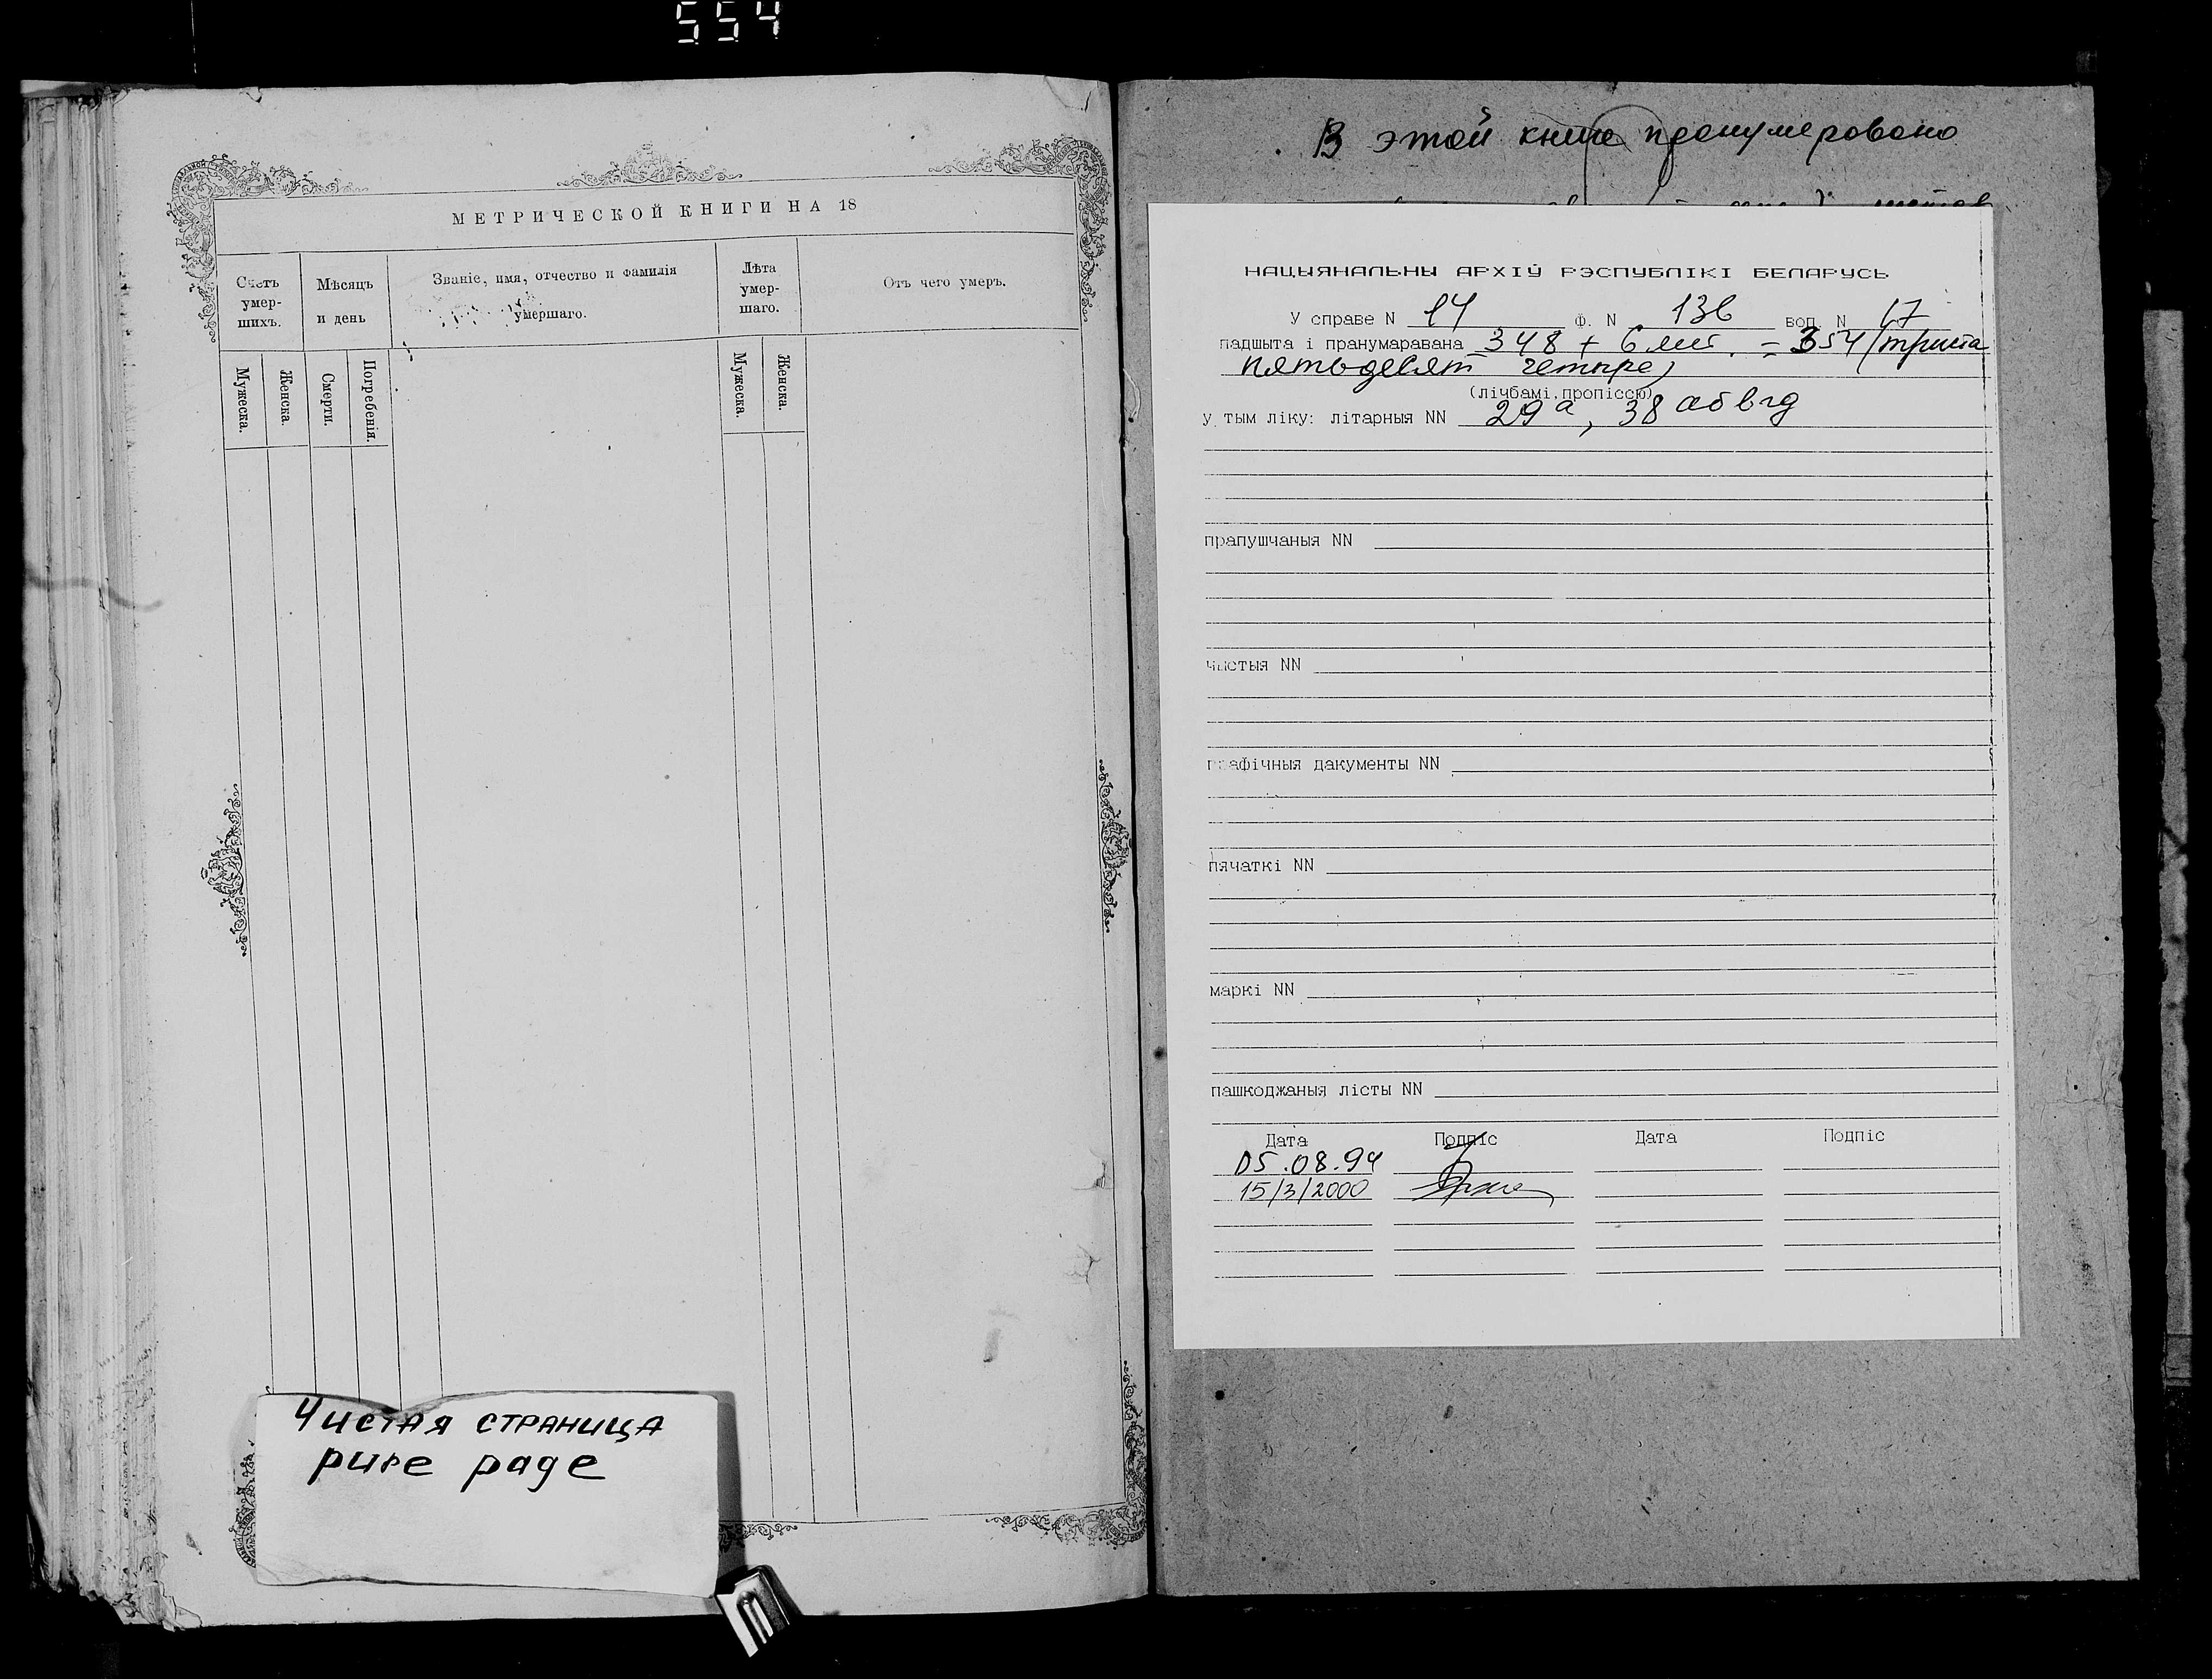 554
МЕТРИЧЕСКОЙ КНИГИ НА 18
Счетъ умер-шихъ.
Мѣсяцъ и день
Званіе, имя, отчество и фамилія умершаго.
Лѣта умер-шаго.
Отъ чего умеръ.
Мужеска.
Женска.
Смерти.
Погребенія.
Мужеска.
Женска.
Чистая страница
pure page
В этой книге пронумеровано
НАЦЫЯНАЛЬНЫ АРХІЎ РЭСПУБЛІКІ БЕЛАРУСЬ
У справе N 14 Ф. N 136 воп. N 17
падшыта і пранумаравана 348 + 6 лит. = 354 (триста
пятьдесят четыре)
(лічбамі, пропіссю)
у тым ліку: літарныя NN 29а, 38 абвгд
прапушчаныя NN
чыстыя NN
графічныя дакументы NN
пячаткі NN
маркі NN
пашкоджаныя лісты NN
Дата Подпіс Дата Подпіс
05.08.94
15/3/2000